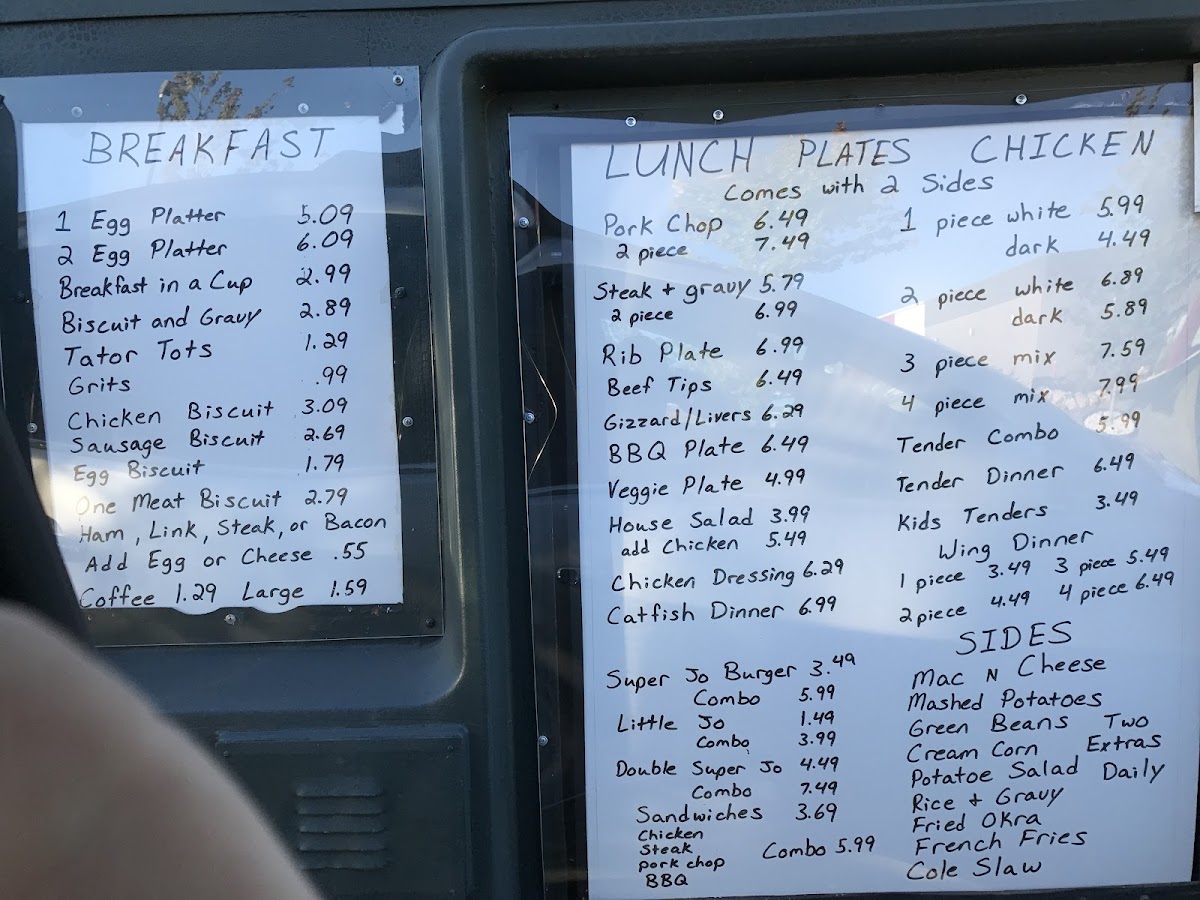 BREAKFAST
1 Egg Platter 5.09
2 Egg Platter 6.09
Breakfast in a Cup 2.99
Biscuit and Gravy 2.89
Tator Tots 1.29
Grits .99
Chicken Biscuit 3.09
Sausage Biscuit 2.69
Egg Biscuit 1.79
One Meat Biscuit 2.79
Ham, Link, Steak, or Bacon
Add Egg or Cheese .55
Coffee 1.29 Large 1.59
LUNCH PLATES CHICKEN
Comes with 2 Sides
Pork Chop 6.49
2 piece 7.49
Steak + gravy 5.79
2 piece 6.99
Rib Plate 6.99
Beef Tips 6.49
Gizzard/Livers 6.29
BBQ Plate 6.49
Veggie Plate 4.99
House Salad 3.99
add Chicken 5.49
Chicken Dressing 6.29
Catfish Dinner 6.99
Super Jo Burger 3.49
Combo 5.99
Little Jo 1.49
Combo 3.99
Double Super Jo 4.49
Combo 7.49
Sandwiches 3.69
Chicken
Steak
pork chop Combo 5.99
BBQ
1 piece white 5.99
dark 4.49
2 piece white 6.89
dark 5.89
3 piece mix 7.59
4 piece mix 7.99
Tender Combo 5.99
Tender Dinner 6.49
Kids Tenders 3.49
Wing Dinner
1 piece 3.49 3 piece 5.49
2 piece 4.49 4 piece 6.49
SIDES
Mac N Cheese
Mashed Potatoes
Green Beans Two
Cream Corn Extras
Potatoe Salad Daily
Rice + Gravy
Fried Okra
French Fries
Cole Slaw